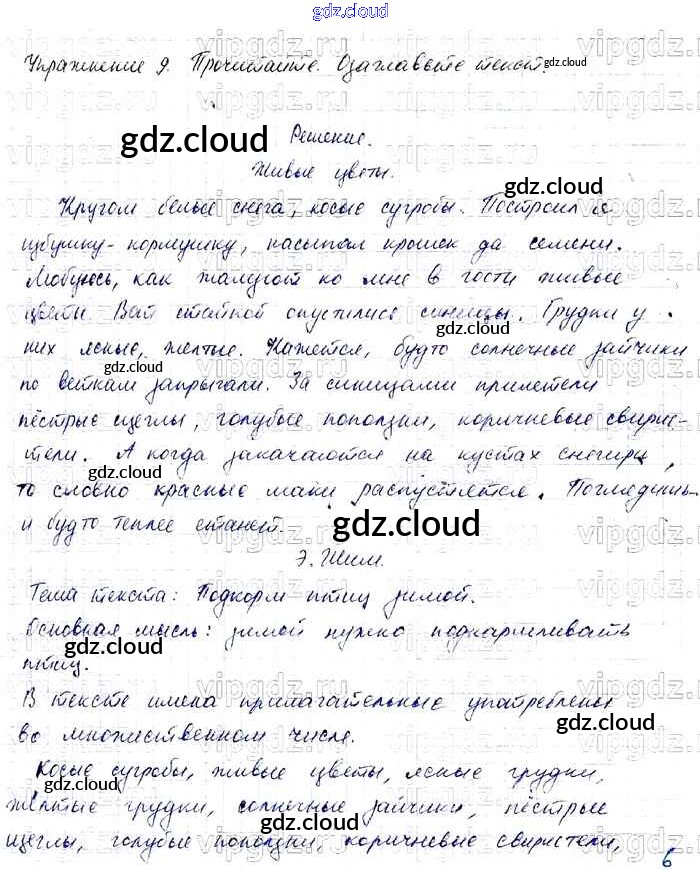 gdz.cloud
Упражнение 9. Прочитайте. Озаглавьте текст.
Решение.
Живые цветы.
Кругом белые снега, косые сугробы. Построил я
избушку-кормушку, насыпал крошек да семени.
Любуюсь, как жалуют ко мне в гости живые
цветы. Вот стайкой опустились синицы. Грудки у
них ясные, желтые. Кажется, будто солнечные зайчики
по веткам запрыгали. За синицами прилетели
пёстрые щеглы, голубые поползни, коричневые свирис-
тели. А когда закачаются на кустах снегири,
то словно красные маки распустятся. Поглядишь-
и будто теплее станет.
Э. Шим.
Тема текста: Подкорм птиц зимой.
Основная мысль: зимой нужно подкармливать
птиц.
В тексте имена прилагательные употреблены
во множественном числе.
Косые сугробы, живые цветы, ясные грудки,
жёлтые грудки, солнечные зайчики, пёстрые
щеглы, голубые поползни, коричневые свиристели,
6